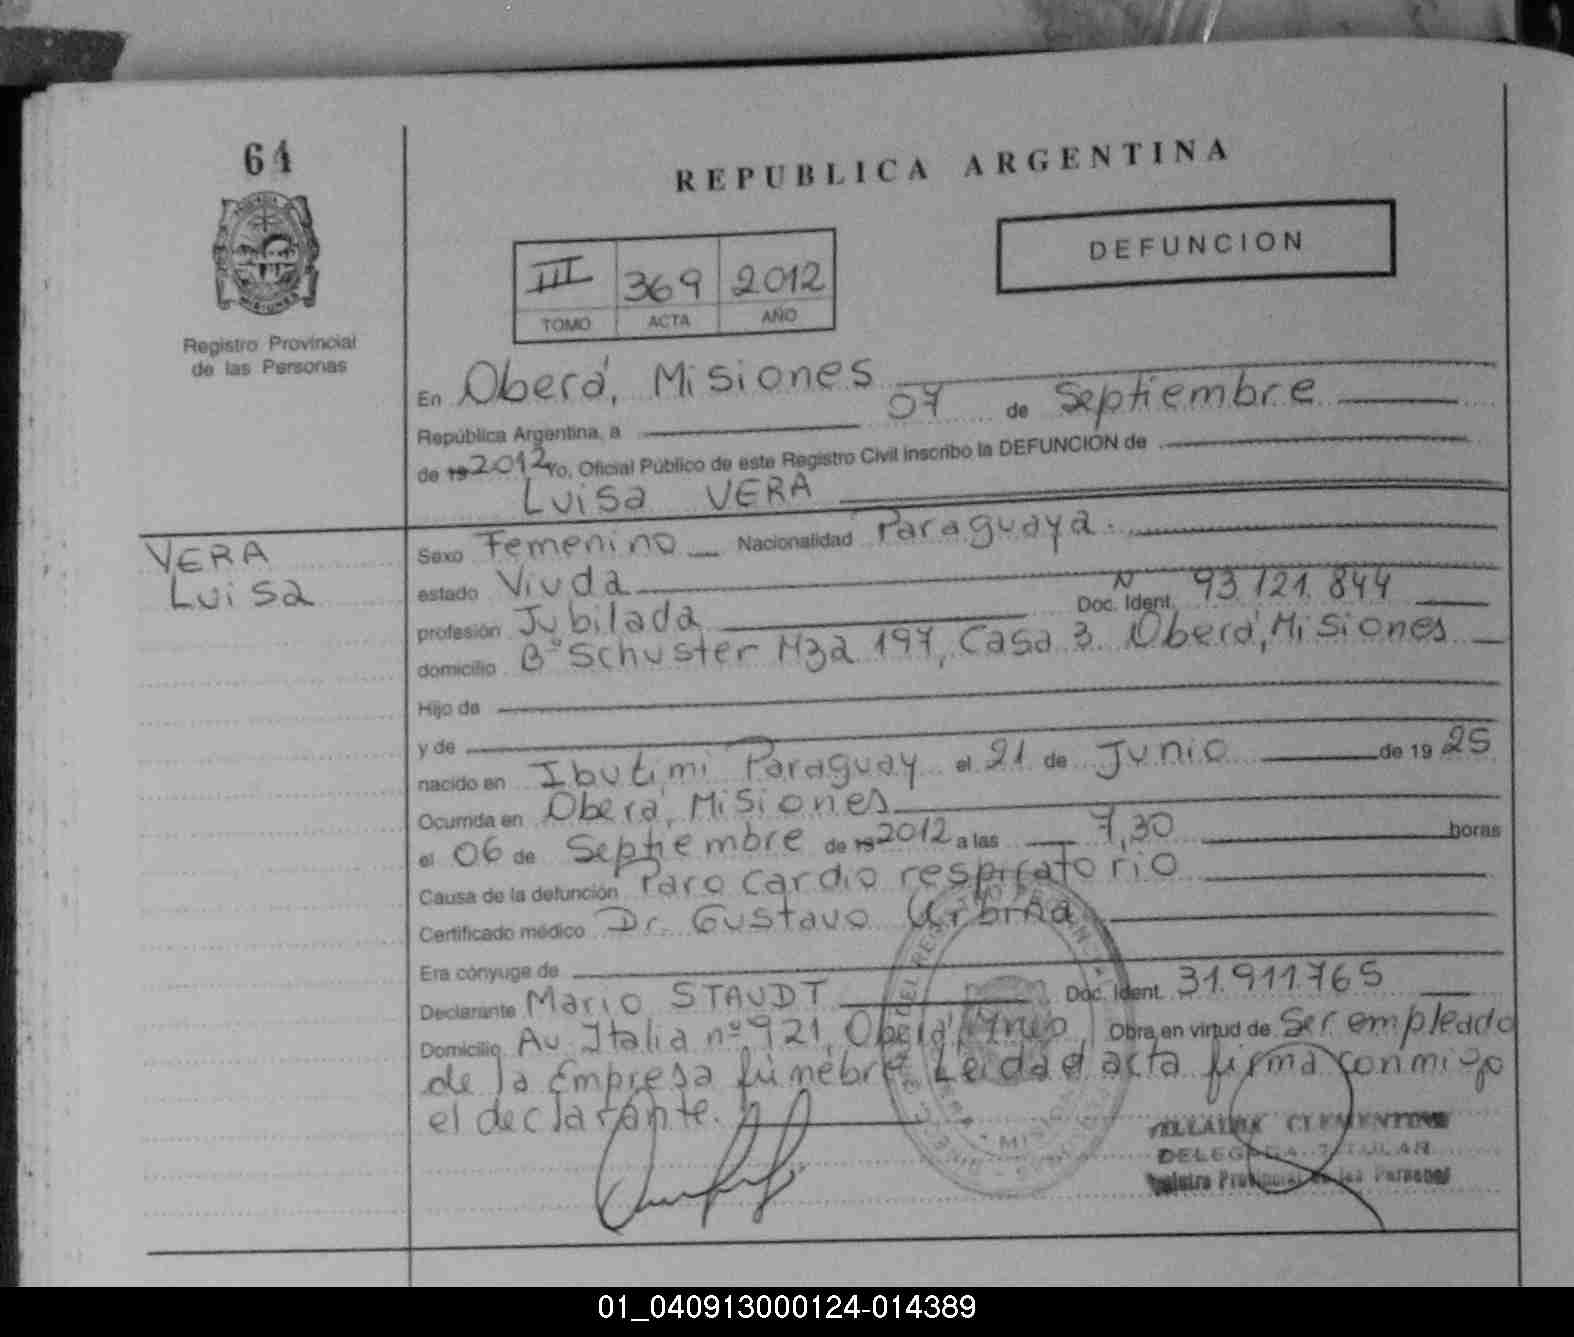 64
REPUBLICA ARGENTINA
DEFUNCION
III 369 2012
TOMO ACTA AÑO
MISIONES
Registro Provincial
de las Personas
En Oberá, Misiones
República Argentina, a 07 de Septiembre
de 19 2012 Yo, Oficial Público de este Registro Civil inscribo la DEFUNCION de
Luisa VERA
VERA
Luisa
Sexo Femenino Nacionalidad Paraguaya.
estado Viuda
profesión Jubilada Doc. Ident. N° 93.121.844
domicilio B° Schuster Mza 197, Casa 3. Oberá, Misiones
Hijo de
y de
nacido en Ibutimi Paraguay el 21 de Junio de 19 25
Ocurrida en Oberá, Misiones
el 06 de Septiembre de 19 2012 a las 7,30 horas
Causa de la defunción Paro cardio respiratorio
Certificado médico Dr. Gustavo
Era cónyuge de
Declarante Mario STAUDT Doc. Ident. 31.911.765
Domicilio Av. Italia n° 921, Oberá, Obra en virtud de Ser empleado
de la Empresa fúnebre Leida el acta firma conmigo
el declarante.
CLEMENTINA
DELEGADA TITULAR
Registro Provincial de las Personas
01_040913000124-014389